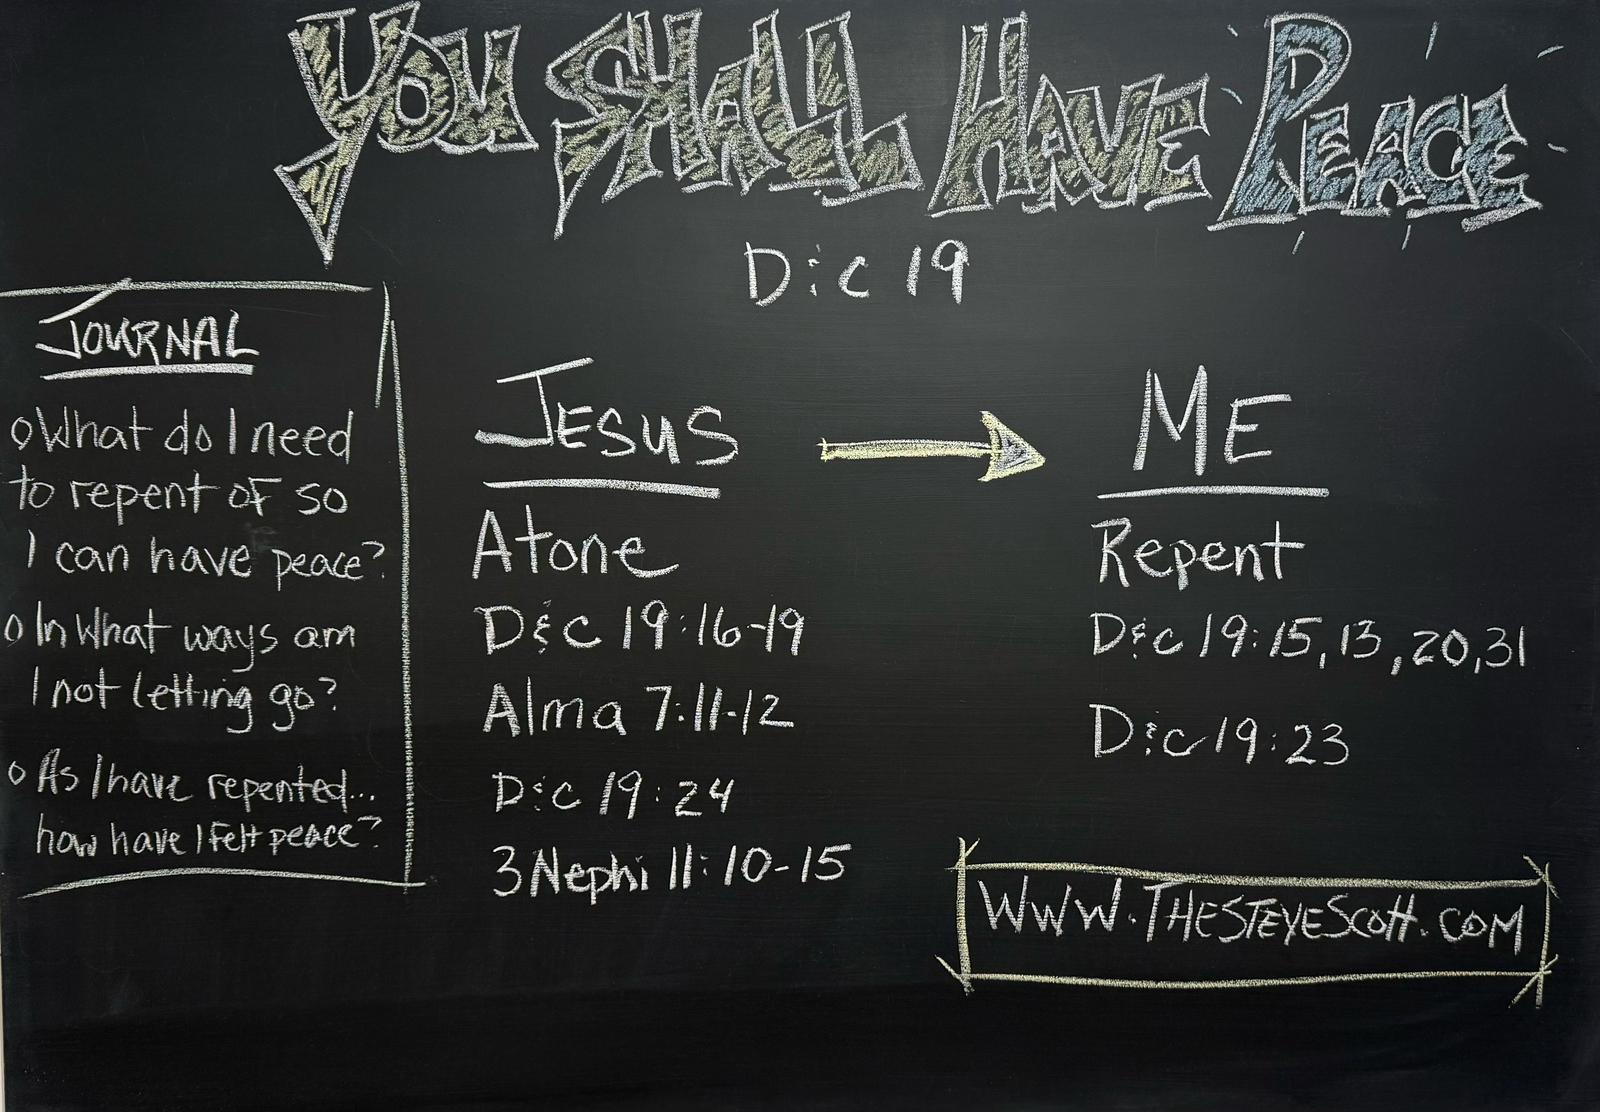 You Shall Have Peace
D&C 19
Journal
o What do I need
to repent of so
I can have peace?
o In What ways am
I not letting go?
o As I have repented...
how have I felt peace?
Jesus
Atone
D&C 19:16-19
Alma 7:11-12
D&C 19:24
3 Nephi 11:10-15
Me
Repent
D&C 19:15, 13, 20, 31
D&C 19:23
www.TheSteveScott.com